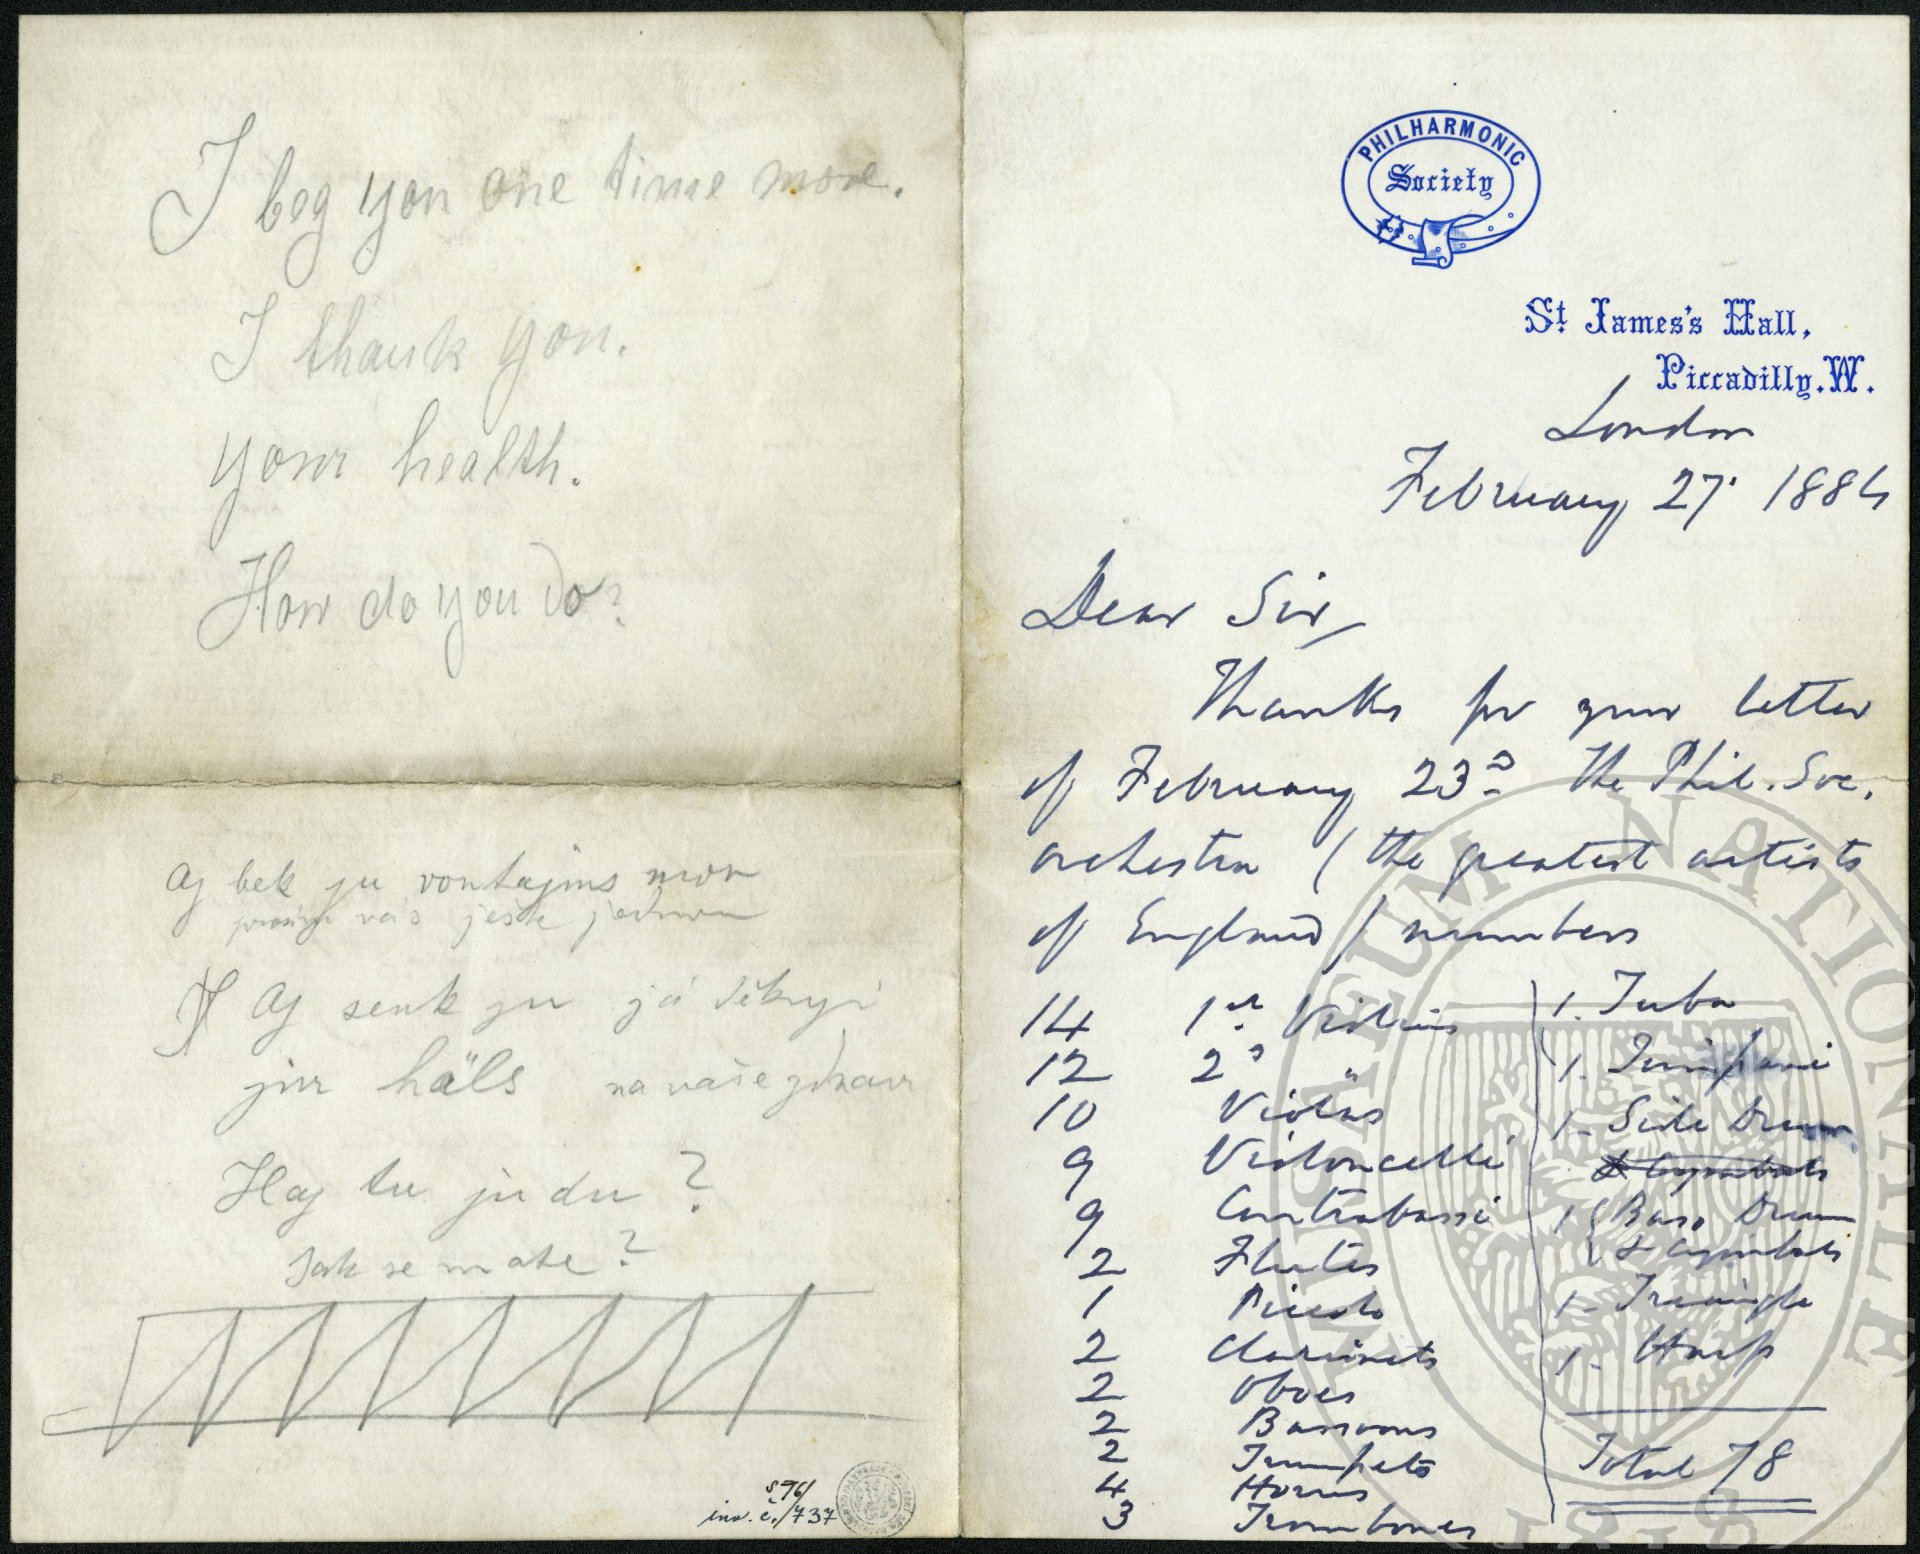 I beg you one time more.
I thank you.
your health.
How do you do?
Aj bek ju vontajms mor
prosím vás ješte jednou
Aj senk ju já děkuji
jur häls na vaše zdraví
Haj tu ju du?
Jak se mate?
S 76/
inv. č./737
PHILHARMONIC
Society
St James's Hall,
Piccadilly. W.
London
February 27. 1884
Dear Sir,
Thanks for your letter
of February 23d. The Phil. Soc.
orchestra (the greatest artists
of England) numbers
14 1st. Violins
12 2d "
10 Violas
9 Violoncelli
9 Contrabassi
2 Flutes
1 Piccolo
2 Clarinets
2 Oboes
2 Bassoons
2 Trumpets
4 Horns
3 Trombones
1. Tuba
1. Timpani
1- Side Drum
& Cymbals
1 { Bass Drum
& Cymbals
1- Triangle
1- Harp
Total 78
MUSEUM NATIONALE
1818